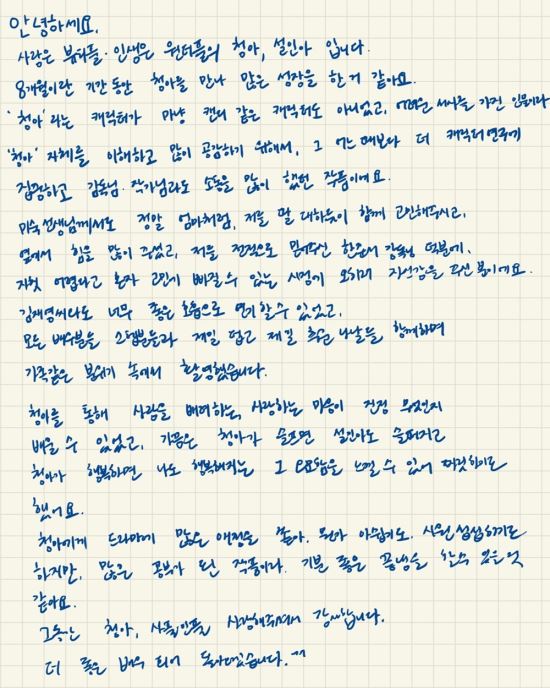 안녕하세요.
사랑은 뷰티풀·인생은 원더풀의 청아, 설인아 입니다.
8개월이란 기간동안 청아를 만나 많은 성장을 한 거 같아요.
'청아'라는 캐릭터가 마냥 캔디 같은 캐릭터도 아니었고, 어려운 서사를 가진 인물이라
'청아' 자체를 이해하고 많이 공감하기 위해서, 그 어느때보다 더 캐릭터연구에
집중하고 감독님·작가님과도 소통을 많이 했던 작품이에요.
미숙선생님께서도 정말 엄마처럼, 저를 딸 대하듯이 함께 고민해주시고,
옆에서 힘을 많이 주셨고, 저를 전적으로 믿어주신 한준서 감독님 덕분에,
자칫 어렵다고 혼자 고민에 빠질 수 있는 시점에 오히려 자신감을 주신 분이에요.
김재영씨와도 너무 좋은 호흡으로 연기할수 있었고,
모든 배우분들 스탭분들과 제일 덥고 제일 추운 나날들 함께하며
가족같은 분위기 속에서 촬영했습니다.
청아를 통해 사람을 배려하는, 사랑하는 마음이 진정 무엇인지
배울 수 있었고, 가끔은 청아가 슬프면 설인아도 슬퍼지고
청아가 행복하면 나도 행복해지는 그 묘함을 느낄 수 있어 짜릿하기도
했어요.
청아에게 드라마에 많은 애정을 쏟아. 뭔가 아쉽기도. 시원섭섭하기도
하지만, 많은 공부가 된 작품이라. 기분 좋은 끝냄을 할수 있을것
같아요.
그동안 청아, 사풀인풀 사랑해주셔서 감사합니다.
더 좋은 배우 되어 돌아오겠습니다.^^